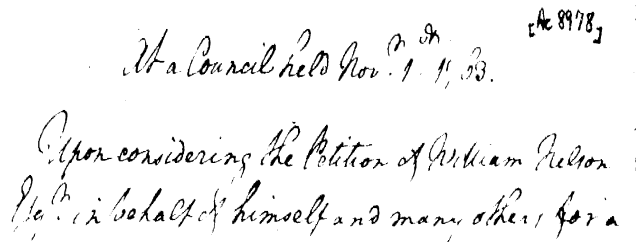 [Ac 8978]
At a Council held Nov.r 1.st 63.
Upon considering the Petition of William Nelson
Esq.r in behalf of himself and many others for a